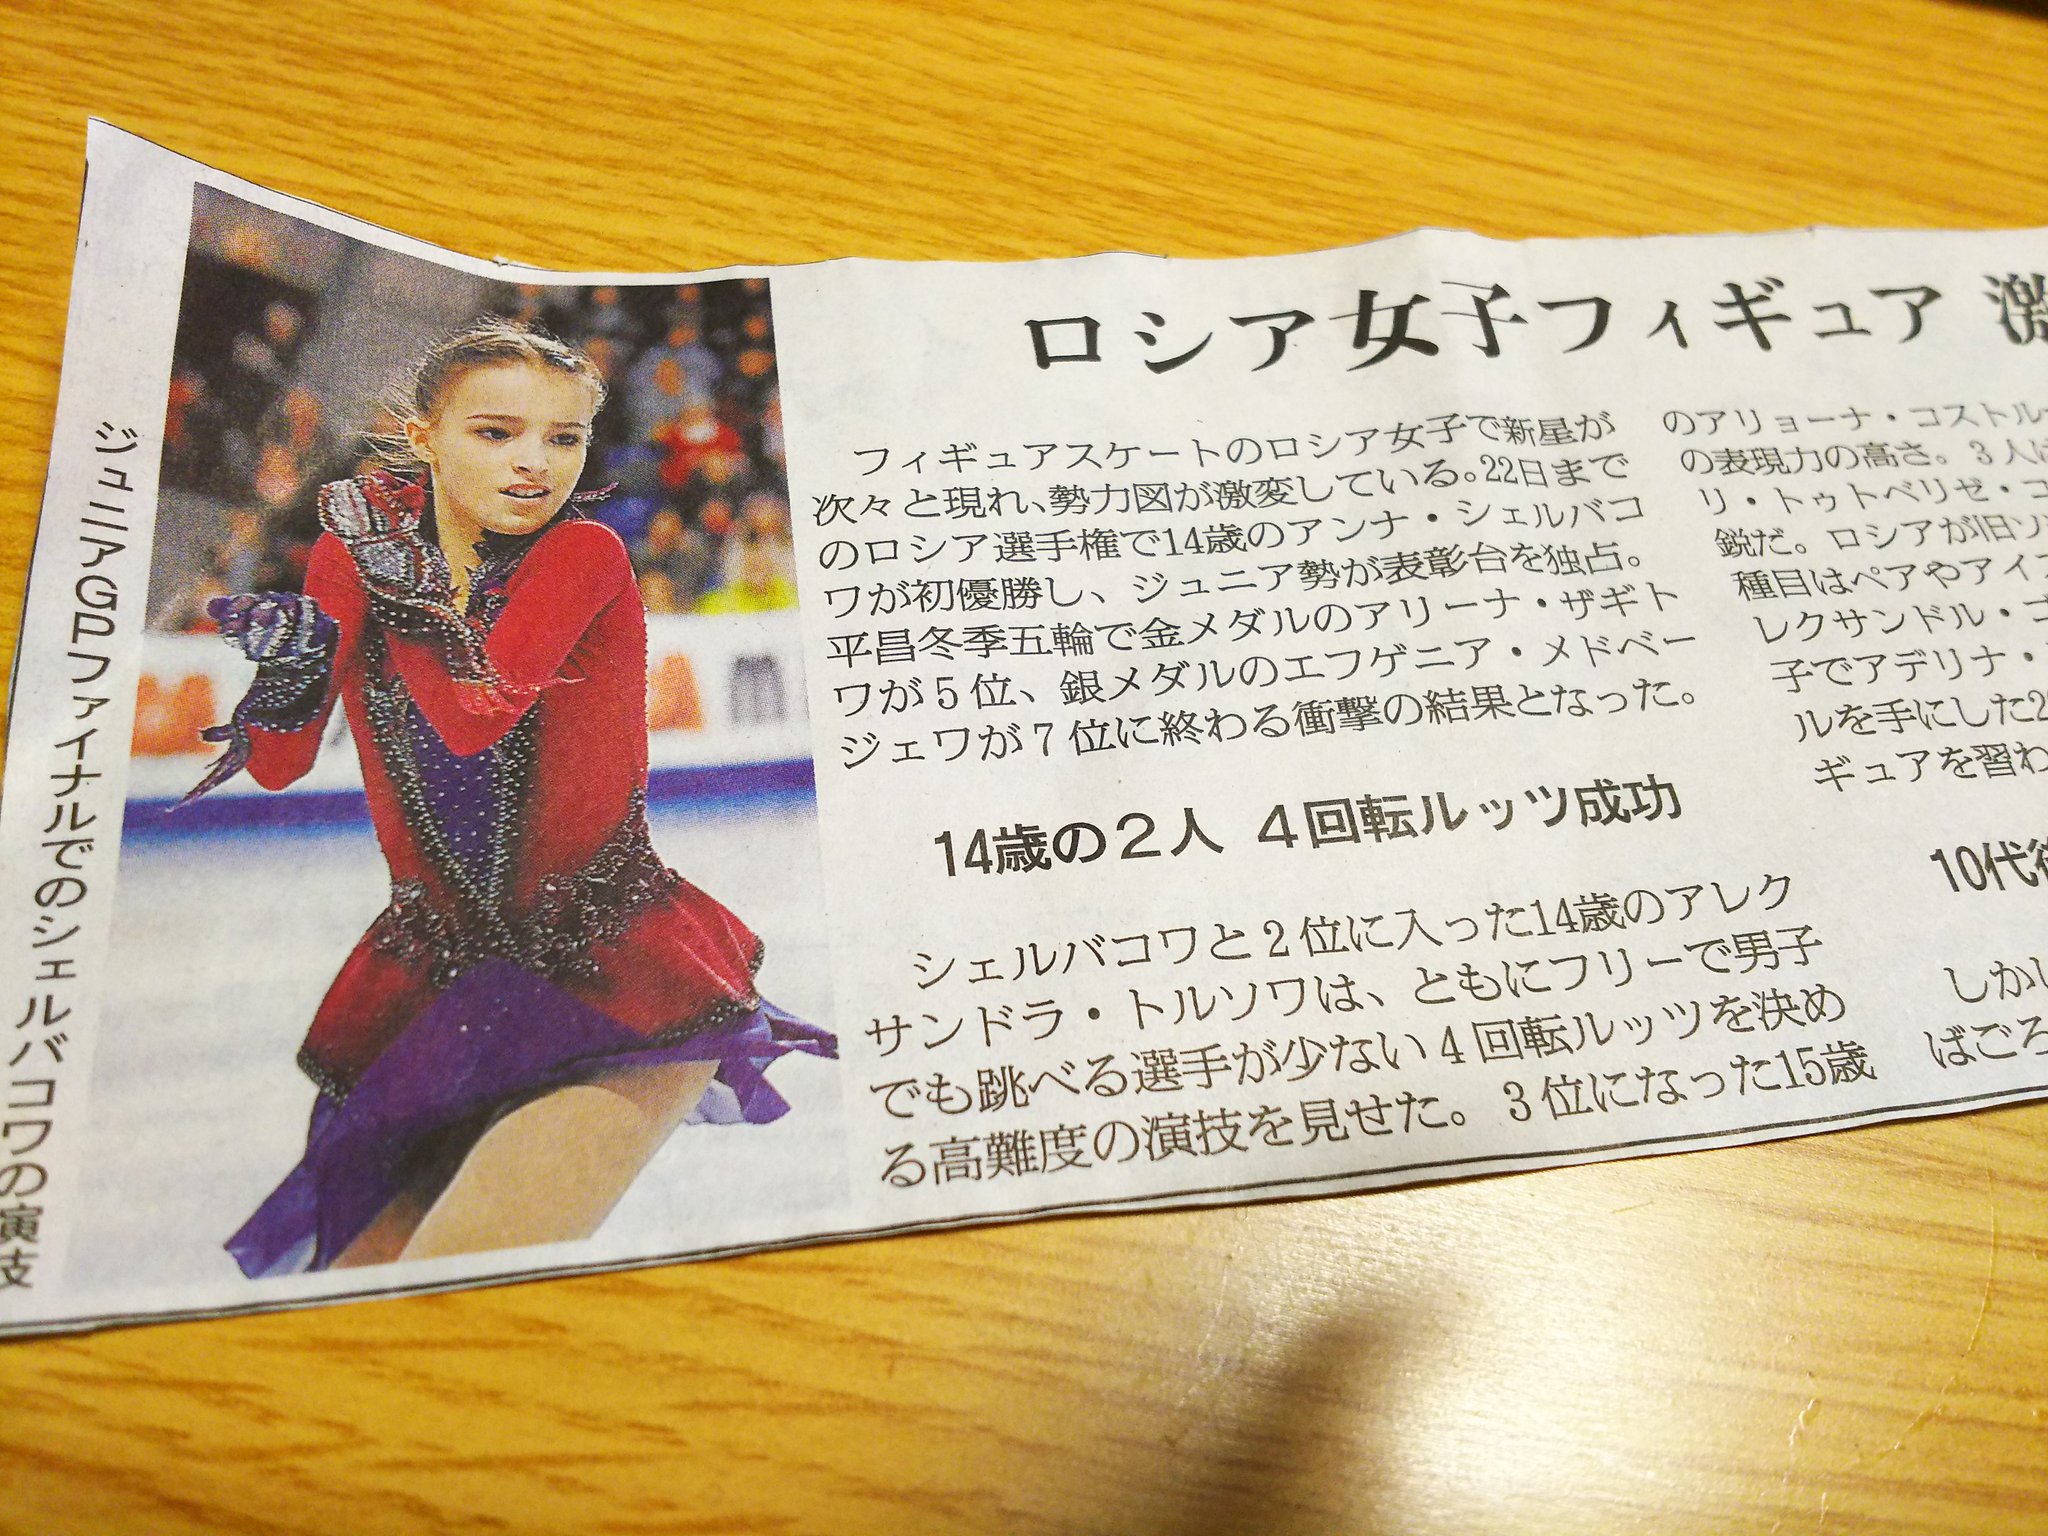 ロシア女子フィギュア 激
フィギュアスケートのロシア女子で新星が
次々と現れ、勢力図が激変している。22日まで
のロシア選手権で14歳のアンナ・シェルバコ
ワが初優勝し、ジュニア勢が表彰台を独占。
平昌冬季五輪で金メダルのアリーナ・ザギト
ワが5位、銀メダルのエフゲニア・メドベー
ジェワが7位に終わる衝撃の結果となった。
14歳の2人 4回転ルッツ成功
シェルバコワと2位に入った14歳のアレク
サンドラ・トルソワは、ともにフリーで男子
でも跳べる選手が少ない4回転ルッツを決め
る高難度の演技を見せた。3位になった15歳
のアリョーナ・コストル
の表現力の高さ。3人は
リ・トゥトベリゼ・コ
鋭だ。ロシアが旧ソ
種目はペアやアイス
レクサンドル・ゴ
子でアデリナ・
ルを手にした2
ギュアを習わ
10代
しかし
ばごろ
ジュニアGPファイナルでのシェルバコワの演技